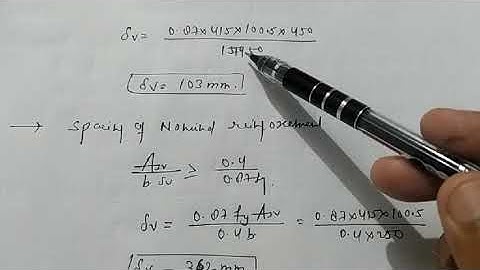 δv = 0.87×415×100.5×450 /
δv = 103 mm.
→ Spacing of Nominal reinforcement
Asv / b sv ≥ 0.4 / 0.87fy
δv = 0.87 fy Asv / 0.4 b = 0.87×415×100.5 / 0.4×250
δv = 362 mm